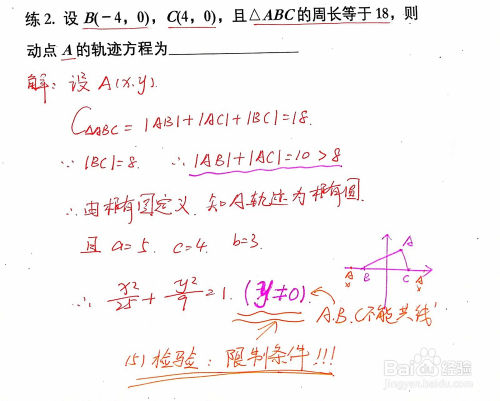 练2. 设 B(－4，0)，C(4，0)，且△ABC的周长等于18，则
动点 A 的轨迹方程为
解：设 A(x.y).
C△ABC = |AB|+|AC|+|BC|=18.
∵ |BC|=8. ∴ |AB|+|AC|=10 > 8
∴ 由椭圆定义. 知A轨迹为椭圆.
且 a=5. c=4. b=3.
A
A B C A
x x
∴ x²/25 + y²/9 = 1. (y≠0)
A.B.C不能共线
(5) 检验：限制条件!!!
Baidu经验
jingyan.baidu.com